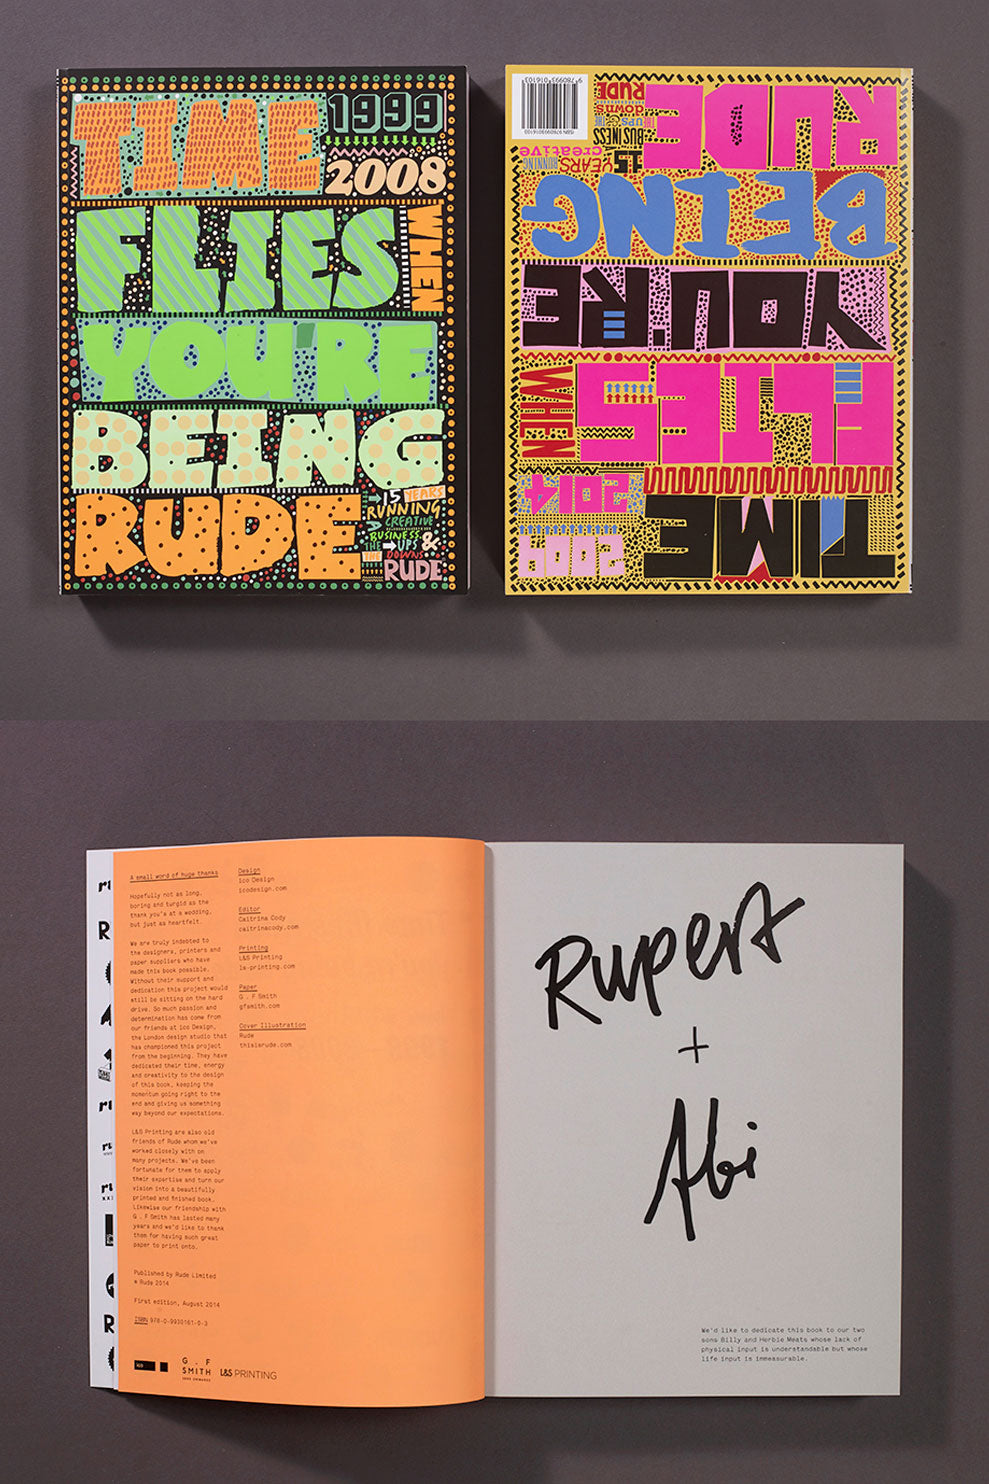 TIME
1999
2008
FLIES
WHEN
YOU'RE
BEING
RUDE
15 YEARS
RUNNING
A CREATIVE
BUSINESS
THE UPS &
THE DOWNS
RUDE
TIME
2009
2014
FLIES
WHEN
YOU'RE
BEING
RUDE
15 YEARS
RUNNING
creative
BUSINESS
THE UPS &
THE downs:
RUDE
9 780993 016103
A small word of huge thanks
Hopefully not as long,
boring and turgid as the
thank you's at a wedding,
but just as heartfelt.
We are truly indebted to
the designers, printers and
paper suppliers who have
made this book possible.
Without their support and
dedication this project would
still be sitting on the hard
drive. So much passion and
determination has come from
our friends at ico Design,
the London design studio that
has championed this project
from the beginning. They have
dedicated their time, energy
and creativity to the design
of this book, keeping the
momentum going right to the
end and giving us something
way beyond our expectations.
L&S Printing are also old
friends of Rude whom we've
worked closely with on
many projects. We've been
fortunate for them to apply
their expertise and turn our
vision into a beautifully
printed and finished book.
Likewise our friendship with
G . F Smith has lasted many
years and we'd like to thank
them for having such great
paper to print onto.
Published by Rude Limited
© Rude 2014
First edition, August 2014
ISBN 978-0-9930161-0-3
ico
G . F
SMITH
L&S PRINTING
Design
ico Design
icodesign.com
Editor
Caitrina Cody
caitrinacody.com
Printing
L&S Printing
ls-printing.com
Paper
G . F Smith
gfsmith.com
Cover Illustration
Rude
thisisrude.com
Rupert
+
Abi
We'd like to dedicate this book to our two
sons Billy and Herbie Meats whose lack of
physical input is understandable but whose
life input is immeasurable.